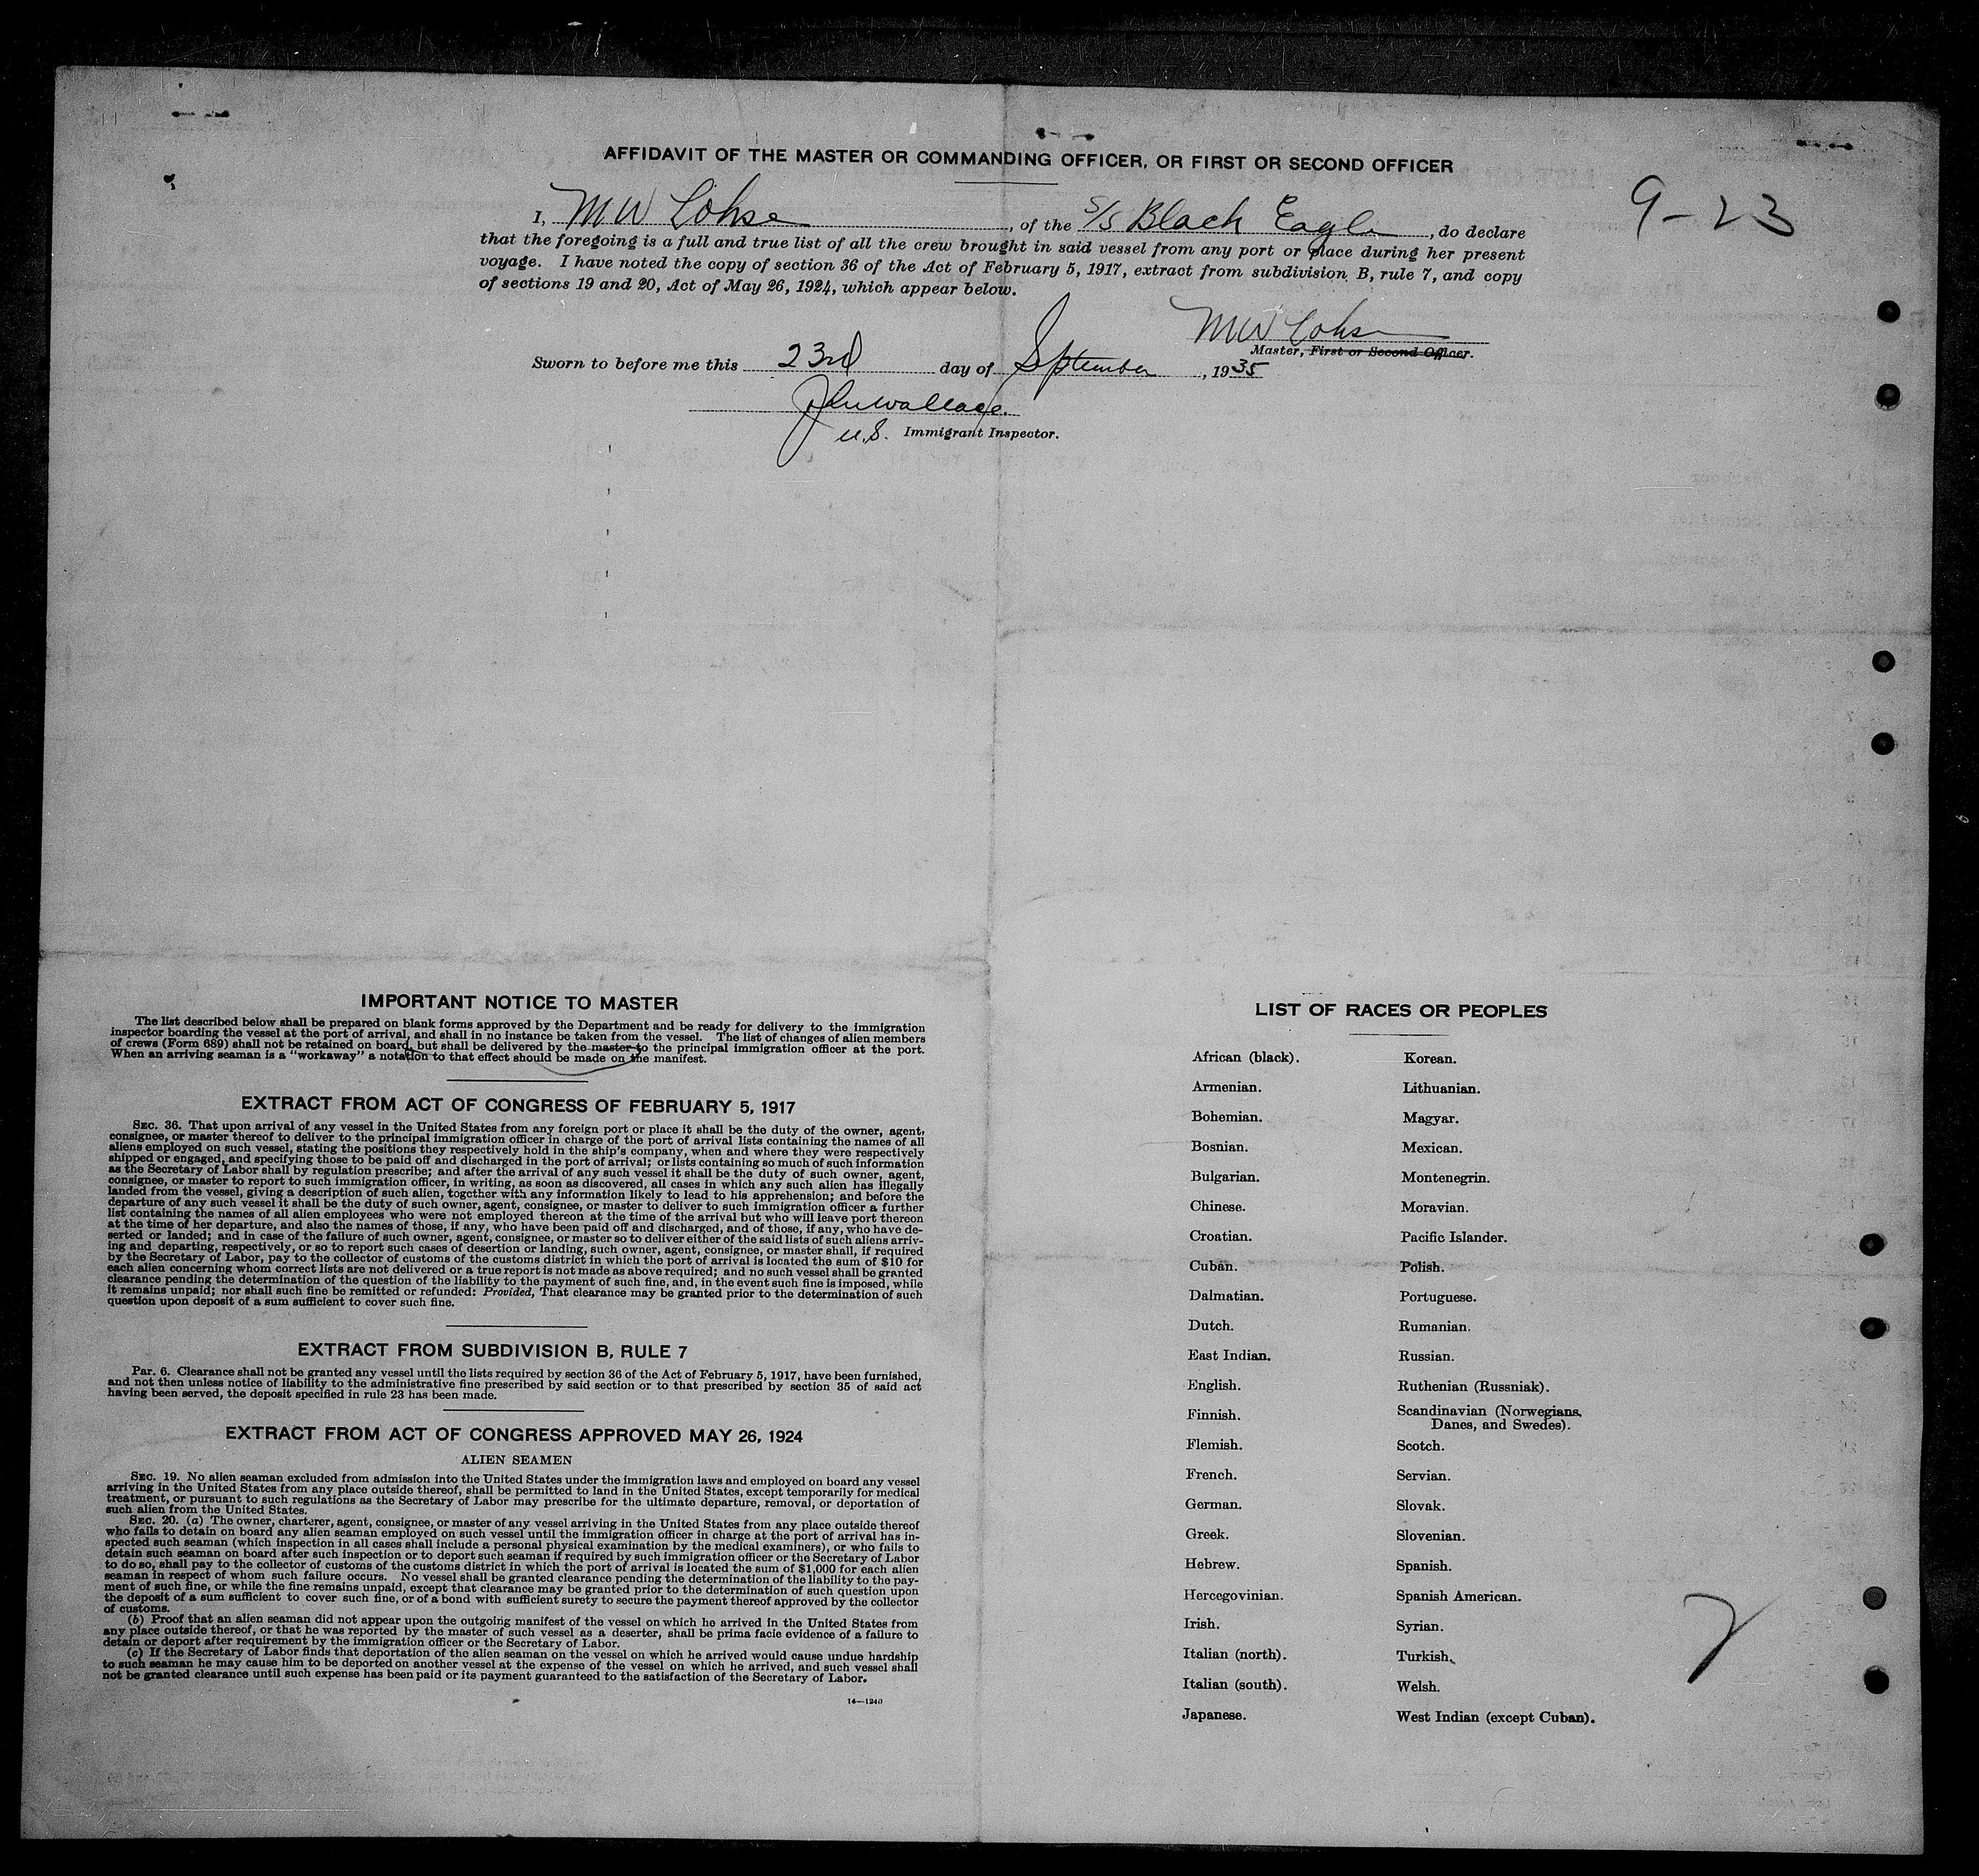 AFFIDAVIT OF THE MASTER OR COMMANDING OFFICER, OR FIRST OR SECOND OFFICER
9-23
I, M W Lohse, of the S/S Black Eagle, do declare
that the foregoing is a full and true list of all the crew brought in said vessel from any port or place during her present
voyage. I have noted the copy of section 36 of the Act of February 5, 1917, extract from subdivision B, rule 7, and copy
of sections 19 and 20, Act of May 26, 1924, which appear below.
M W Lohse
Master, First or Second Officer.
Sworn to before me this 23rd day of September, 1935
Wallace.
U.S. Immigrant Inspector.
IMPORTANT NOTICE TO MASTER
The list described below shall be prepared on blank forms approved by the Department and be ready for delivery to the immigration
inspector boarding the vessel at the port of arrival, and shall in no instance be taken from the vessel. The list of changes of alien members
of crews (Form 689) shall not be retained on board, but shall be delivered by the master to the principal immigration officer at the port.
When an arriving seaman is a "workaway" a notation to that effect should be made on the manifest.
EXTRACT FROM ACT OF CONGRESS OF FEBRUARY 5, 1917
SEC. 36. That upon arrival of any vessel in the United States from any foreign port or place it shall be the duty of the owner, agent,
consignee, or master thereof to deliver to the principal immigration officer in charge of the port of arrival lists containing the names of all
aliens employed on such vessel, stating the positions they respectively hold in the ship's company, when and where they were respectively
shipped or engaged, and specifying those to be paid off and discharged in the port of arrival; or lists containing so much of such information
as the Secretary of Labor shall by regulation prescribe; and after the arrival of any such vessel it shall be the duty of such owner, agent,
consignee, or master to report to such immigration officer, in writing, as soon as discovered, all cases in which any such alien has illegally
landed from the vessel, giving a description of such alien, together with any information likely to lead to his apprehension; and before the
departure of any such vessel it shall be the duty of such owner, agent, consignee, or master to deliver to such immigration officer a further
list containing the names of all alien employees who were not employed thereon at the time of the arrival but who will leave port thereon
at the time of her departure, and also the names of those, if any, who have been paid off and discharged, and of those, if any, who have de-
serted or landed; and in case of the failure of such owner, agent, consignee, or master so to deliver either of the said lists of such aliens arriv-
ing and departing, respectively, or so to report such cases of desertion or landing, such owner, agent, consignee, or master shall, if required
by the Secretary of Labor, pay to the collector of customs of the customs district in which the port of arrival is located the sum of $10 for
each alien concerning whom correct lists are not delivered or a true report is not made as above required; and no such vessel shall be granted
clearance pending the determination of the question of the liability to the payment of such fine, and, in the event such fine is imposed, while
it remains unpaid; nor shall such fine be remitted or refunded: Provided, That clearance may be granted prior to the determination of such
question upon deposit of a sum sufficient to cover such fine.
EXTRACT FROM SUBDIVISION B, RULE 7
Par. 6. Clearance shall not be granted any vessel until the lists required by section 36 of the Act of February 5, 1917, have been furnished,
and not then unless notice of liability to the administrative fine prescribed by said section or to that prescribed by section 35 of said act
having been served, the deposit specified in rule 23 has been made.
EXTRACT FROM ACT OF CONGRESS APPROVED MAY 26, 1924
ALIEN SEAMEN
SEC. 19. No alien seaman excluded from admission into the United States under the immigration laws and employed on board any vessel
arriving in the United States from any place outside thereof, shall be permitted to land in the United States, except temporarily for medical
treatment, or pursuant to such regulations as the Secretary of Labor may prescribe for the ultimate departure, removal, or deportation of
such alien from the United States.
SEC. 20. (a) The owner, charterer, agent, consignee, or master of any vessel arriving in the United States from any place outside thereof
who fails to detain on board any alien seaman employed on such vessel until the immigration officer in charge at the port of arrival has in-
spected such seaman (which inspection in all cases shall include a personal physical examination by the medical examiners), or who fails to
detain such seaman on board after such inspection or to deport such seaman if required by such immigration officer or the Secretary of Labor
to do so, shall pay to the collector of customs of the customs district in which the port of arrival is located the sum of $1,000 for each alien
seaman in respect of whom such failure occurs. No vessel shall be granted clearance pending the determination of the liability to the pay-
ment of such fine, or while the fine remains unpaid, except that clearance may be granted prior to the determination of such question upon
the deposit of a sum sufficient to cover such fine, or of a bond with sufficient surety to secure the payment thereof approved by the collector
of customs.
(b) Proof that an alien seaman did not appear upon the outgoing manifest of the vessel on which he arrived in the United States from
any place outside thereof, or that he was reported by the master of such vessel as a deserter, shall be prima facie evidence of a failure to
detain or deport after requirement by the immigration officer or the Secretary of Labor.
(c) If the Secretary of Labor finds that deportation of the alien seaman on the vessel on which he arrived would cause undue hardship
to such seaman he may cause him to be deported on another vessel at the expense of the vessel on which he arrived, and such vessel shall
not be granted clearance until such expense has been paid or its payment guaranteed to the satisfaction of the Secretary of Labor.
14—1240
LIST OF RACES OR PEOPLES
African (black).
Armenian.
Bohemian.
Bosnian.
Bulgarian.
Chinese.
Croatian.
Cuban.
Dalmatian.
Dutch.
East Indian.
English.
Finnish.
Flemish.
French.
German.
Greek.
Hebrew.
Hercegovinian.
Irish.
Italian (north).
Italian (south).
Japanese.
Korean.
Lithuanian.
Magyar.
Mexican.
Montenegrin.
Moravian.
Pacific Islander.
Polish.
Portuguese.
Rumanian.
Russian.
Ruthenian (Russniak).
Scandinavian (Norwegians,
Danes, and Swedes).
Scotch.
Servian.
Slovak.
Slovenian.
Spanish.
Spanish American.
Syrian.
Turkish.
Welsh.
West Indian (except Cuban).
7